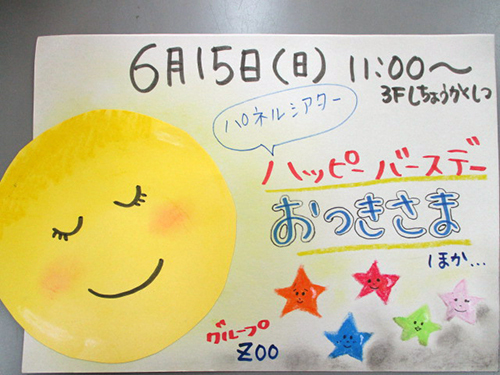 6月15日(日) 11:00～
3Fしちょうかくしつ
パネルシアター
ハッピーバースデー
おつきさま
ほか...
グループ
ZOO